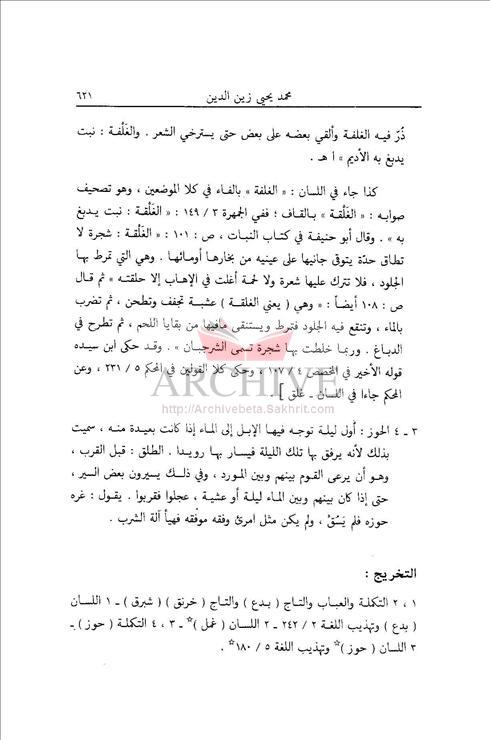 محمد يحيى زين الدين
٦٢١
ذُرّ فيه الغلفة وألقي بعضه على بعض حتى يسترخي الشعر . والغَلْفة : نبت
يدبغ به الأديم » ا هـ .
كذا جاء في اللسان : « الغلفة » بالفاء في كلا الموضعين ، وهو تصحيف
صوابه : « الغَلْقة » بالقاف ؛ ففي الجمهرة ٣ / ١٤٩ : « الغَلْقة : نبت يدبغ
به » . وقال أبو حنيفة في كتاب النبات ، ص : ١٠١ : « الغَلْقة : شجرة لا
تطاق حدّة يتوقى جانيها على عينيه من بخارها أومائها . وهي التي تمرط بها
الجلود ، فلا تترك عليها شعرة ولا لحمة أغلت في الإهاب إلا حلقته » ثم قال
ص : ١٠٨ أيضاً : « وهي ( يعني الغلقة ) عشبة تجفف وتطحن ، ثم تضرب
بالماء ، وتنقع فيه الجلود فتمرط ويستنقى مافيها من بقايا اللحم ، ثم تطرح في
الدباغ . وربما خلطت بها شجرة تسمى الشرجبان » . وقد حكى ابن سيده
قوله الأخير في المخصص ٤ / ١٠٧ ، وحكى كلا القولين في المحكم ٥ / ٢٣١ ، وعن
المحكم جاءا في اللسان ـ غلق ] .
ARCHIVE
http://Archivebeta.Sakhrit.com
٣ ـ ٤ الحوز : أول ليلة توجه فيها الإبل إلى الماء إذا كانت بعيدة منه ، سميت
بذلك لأنه يرفق بها تلك الليلة فيسار بها رويدا . الطلق : قبل القرب ،
وهو أن يرعى القوم بينهم وبين المورد ، وفي ذلك يسيرون بعض السير ،
حتى إذا كان بينهم وبين الماء ليلة أو عشية ، عجلوا فقربوا . يقول : غره
حوزه فلم يَسُقْ ، ولم يكن مثل امرئ وفقه موفّقه فهيأ آلة الشرب .
التخريج :
١ ، ٢ التكملة والعباب والتاج ( بدع ) والتاج ( خرنق ) ( شبرق ) ـ ١ اللسان
( بدع ) وتهذيب اللغة ٢ / ٢٤٢ ـ ٢ اللسان ( غمل )* ـ ٣ ، ٤ التكملة ( حوز ) ـ
٣ اللسان ( حوز )* وتهذيب اللغة ٥ / ١٨٠* .